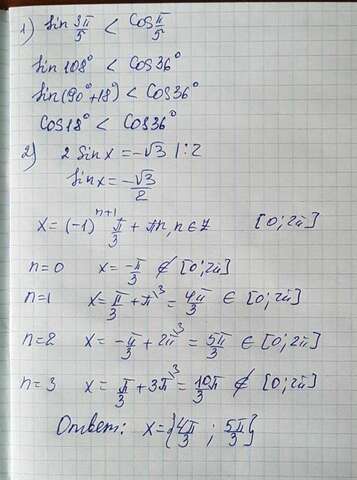 1) Sin 3π/5 < Cos π/5
Sin 108° < Cos 36°
Sin(90°+18°) < Cos 36°
Cos 18° < Cos 36°
2) 2 Sin x = -√3 |:2
Sin x = -√3/2
x = (-1)ⁿ⁺¹ π/3 + πn, n ∈ Z [0; 2π]
n=0 x = -π/3 ∉ [0; 2π]
n=1 x = π/3 + π³ = 4π/3 ∈ [0; 2π]
n=2 x = -π/3 + 2π³ = 5π/3 ∈ [0; 2π]
n=3 x = π/3 + 3π³ = 10π/3 ∉ [0; 2π]
Ответ: x = {4π/3 ; 5π/3}